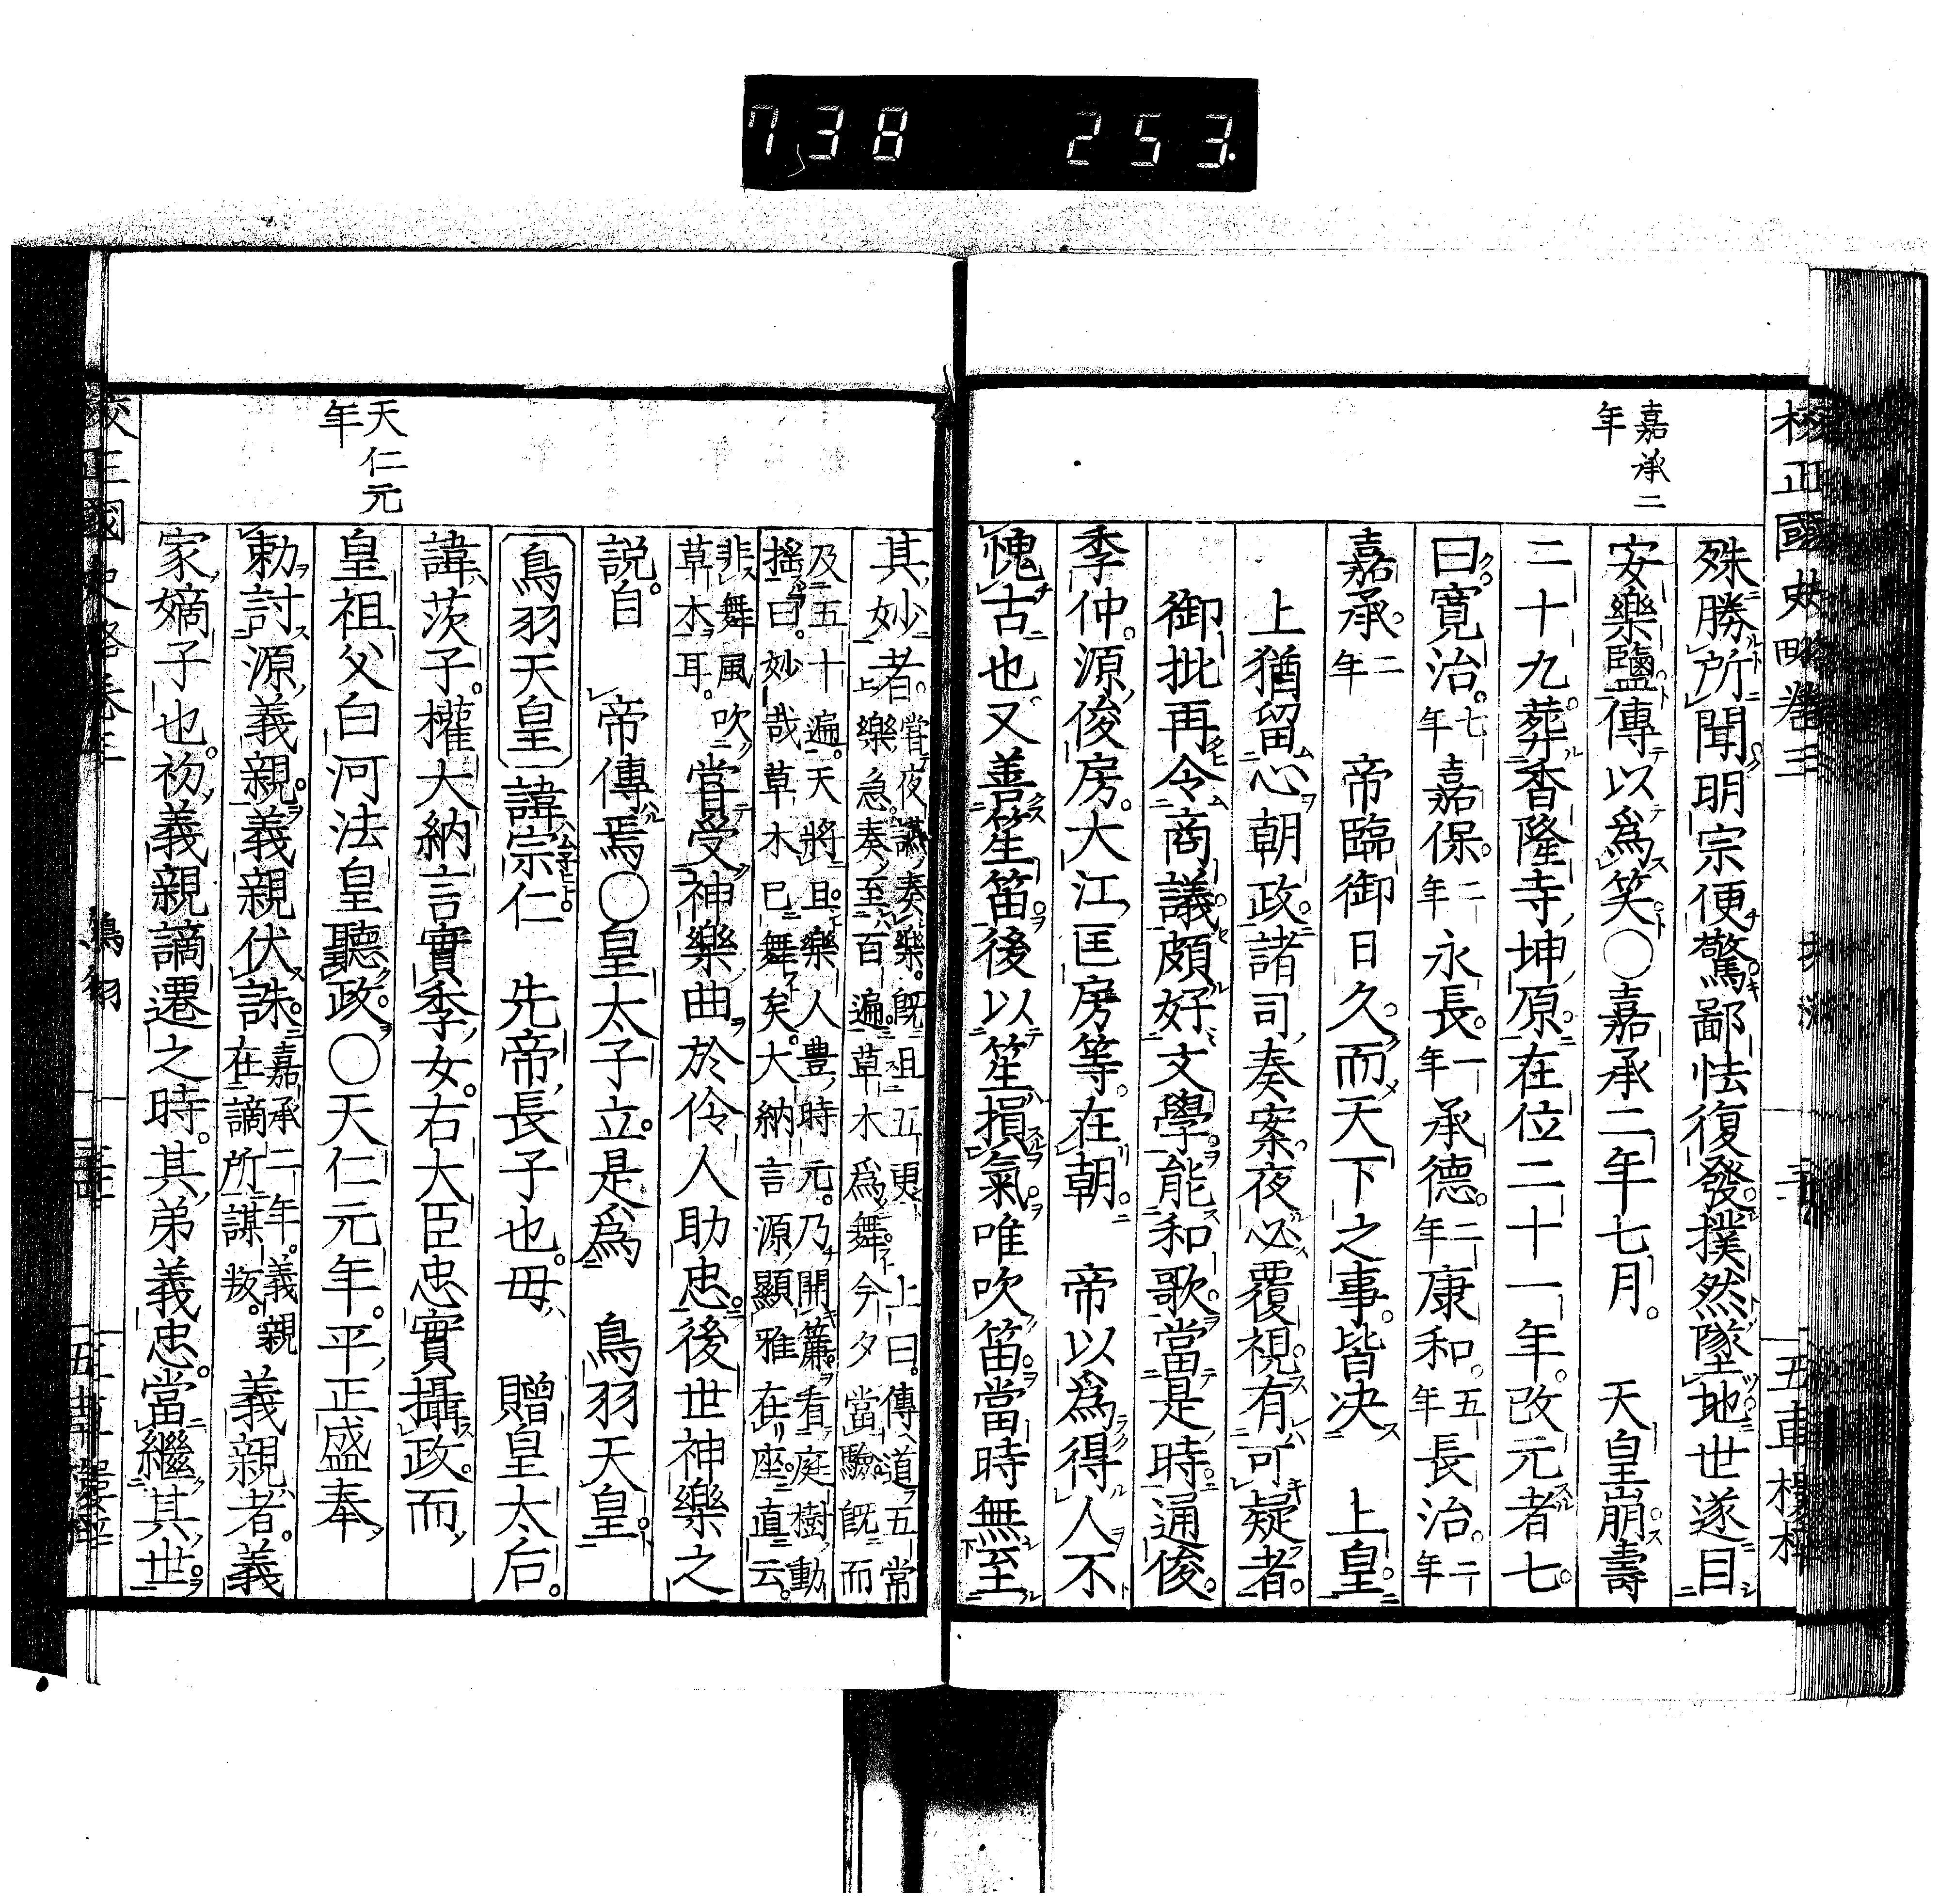 738 253.
嘉承二
年
殊勝所聞明宗便驚鄙怯復發撲然墜地世遂目
安樂鹽傳以爲笑○嘉承二年七月。天皇崩壽
二十九葬香隆寺坤原在位二十一年。改元者七
曰寛治。七年嘉保。二年永長。一年承德。二年康和。五年長治。二年
嘉承。二年帝臨御日久而天下之事。皆决上皇
上猶留心朝政諸司奏案夜必覆視有可疑者
御批再令商議頗好文學能和歌當是時通俊
季仲。源俊房。大江匡房等在朝帝以爲得人不
愧古也又善笙笛後以笙損氣唯吹笛當時無至
其妙者。嘗夜讌奏樂。旣且五更上曰。傳道五常
樂急奏至百遍草木爲舞今夕當驗。旣而
及五十遍。天將且樂人豊時元。乃開簾看庭樹動
搖曰。妙哉草木已舞矣。大納言源顯雅在座直云。
非舞風吹
草木耳。嘗受神樂曲於伶人助忠後世神樂之
説。自帝傳焉○皇太子立。是爲鳥羽天皇
鳥羽天皇諱宗仁。先帝長子也。母贈皇太后。
諱茨子。權大納言實季女。右大臣忠實攝政。而
皇祖父白河法皇聽政。○天仁元年。平正盛奉
天仁元
年
勅討源義親。義親伏誅。嘉承二年。義親
在謫所謀叛。義親者。義
家嫡子也。初義親謫遷之時。其弟義忠。當繼其世。